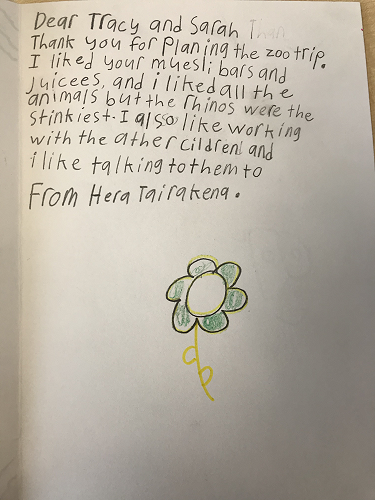 Dear Tracy and Sarah Than
Thank you for Planing the zoo trip.
I liked your muesli bars and
Juicees, and i liked all the
animals but the rhinos were the
stinkiest. I also like working
with the ather cildren and
i like talking to them to
From Hera Tairakena.